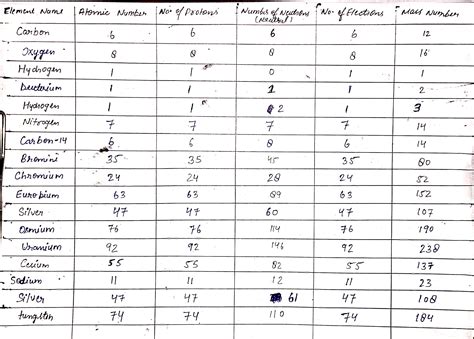 Element Name Atomic Number No. of Protons Number of Neutrons (neutral) No. of Electrons Mass Number
Carbon 6 6 6 6 12
Oxygen 8 8 8 8 16
Hydrogen 1 1 0 1 1
Deuterium 1 1 1 1 2
Hydrogen 1 1 2 1 3
Nitrogen 7 7 7 7 14
Carbon-14 6 6 8 6 14
Bromini 35 35 45 35 80
Chromium 24 24 28 24 52
Europium 63 63 89 63 152
Silver 47 47 60 47 107
Osmium 76 76 114 76 190
Uranium 92 92 146 92 238
Cerium 55 55 82 55 137
Sodium 11 11 12 11 23
Silver 47 47 61 47 108
tungsten 74 74 110 74 184